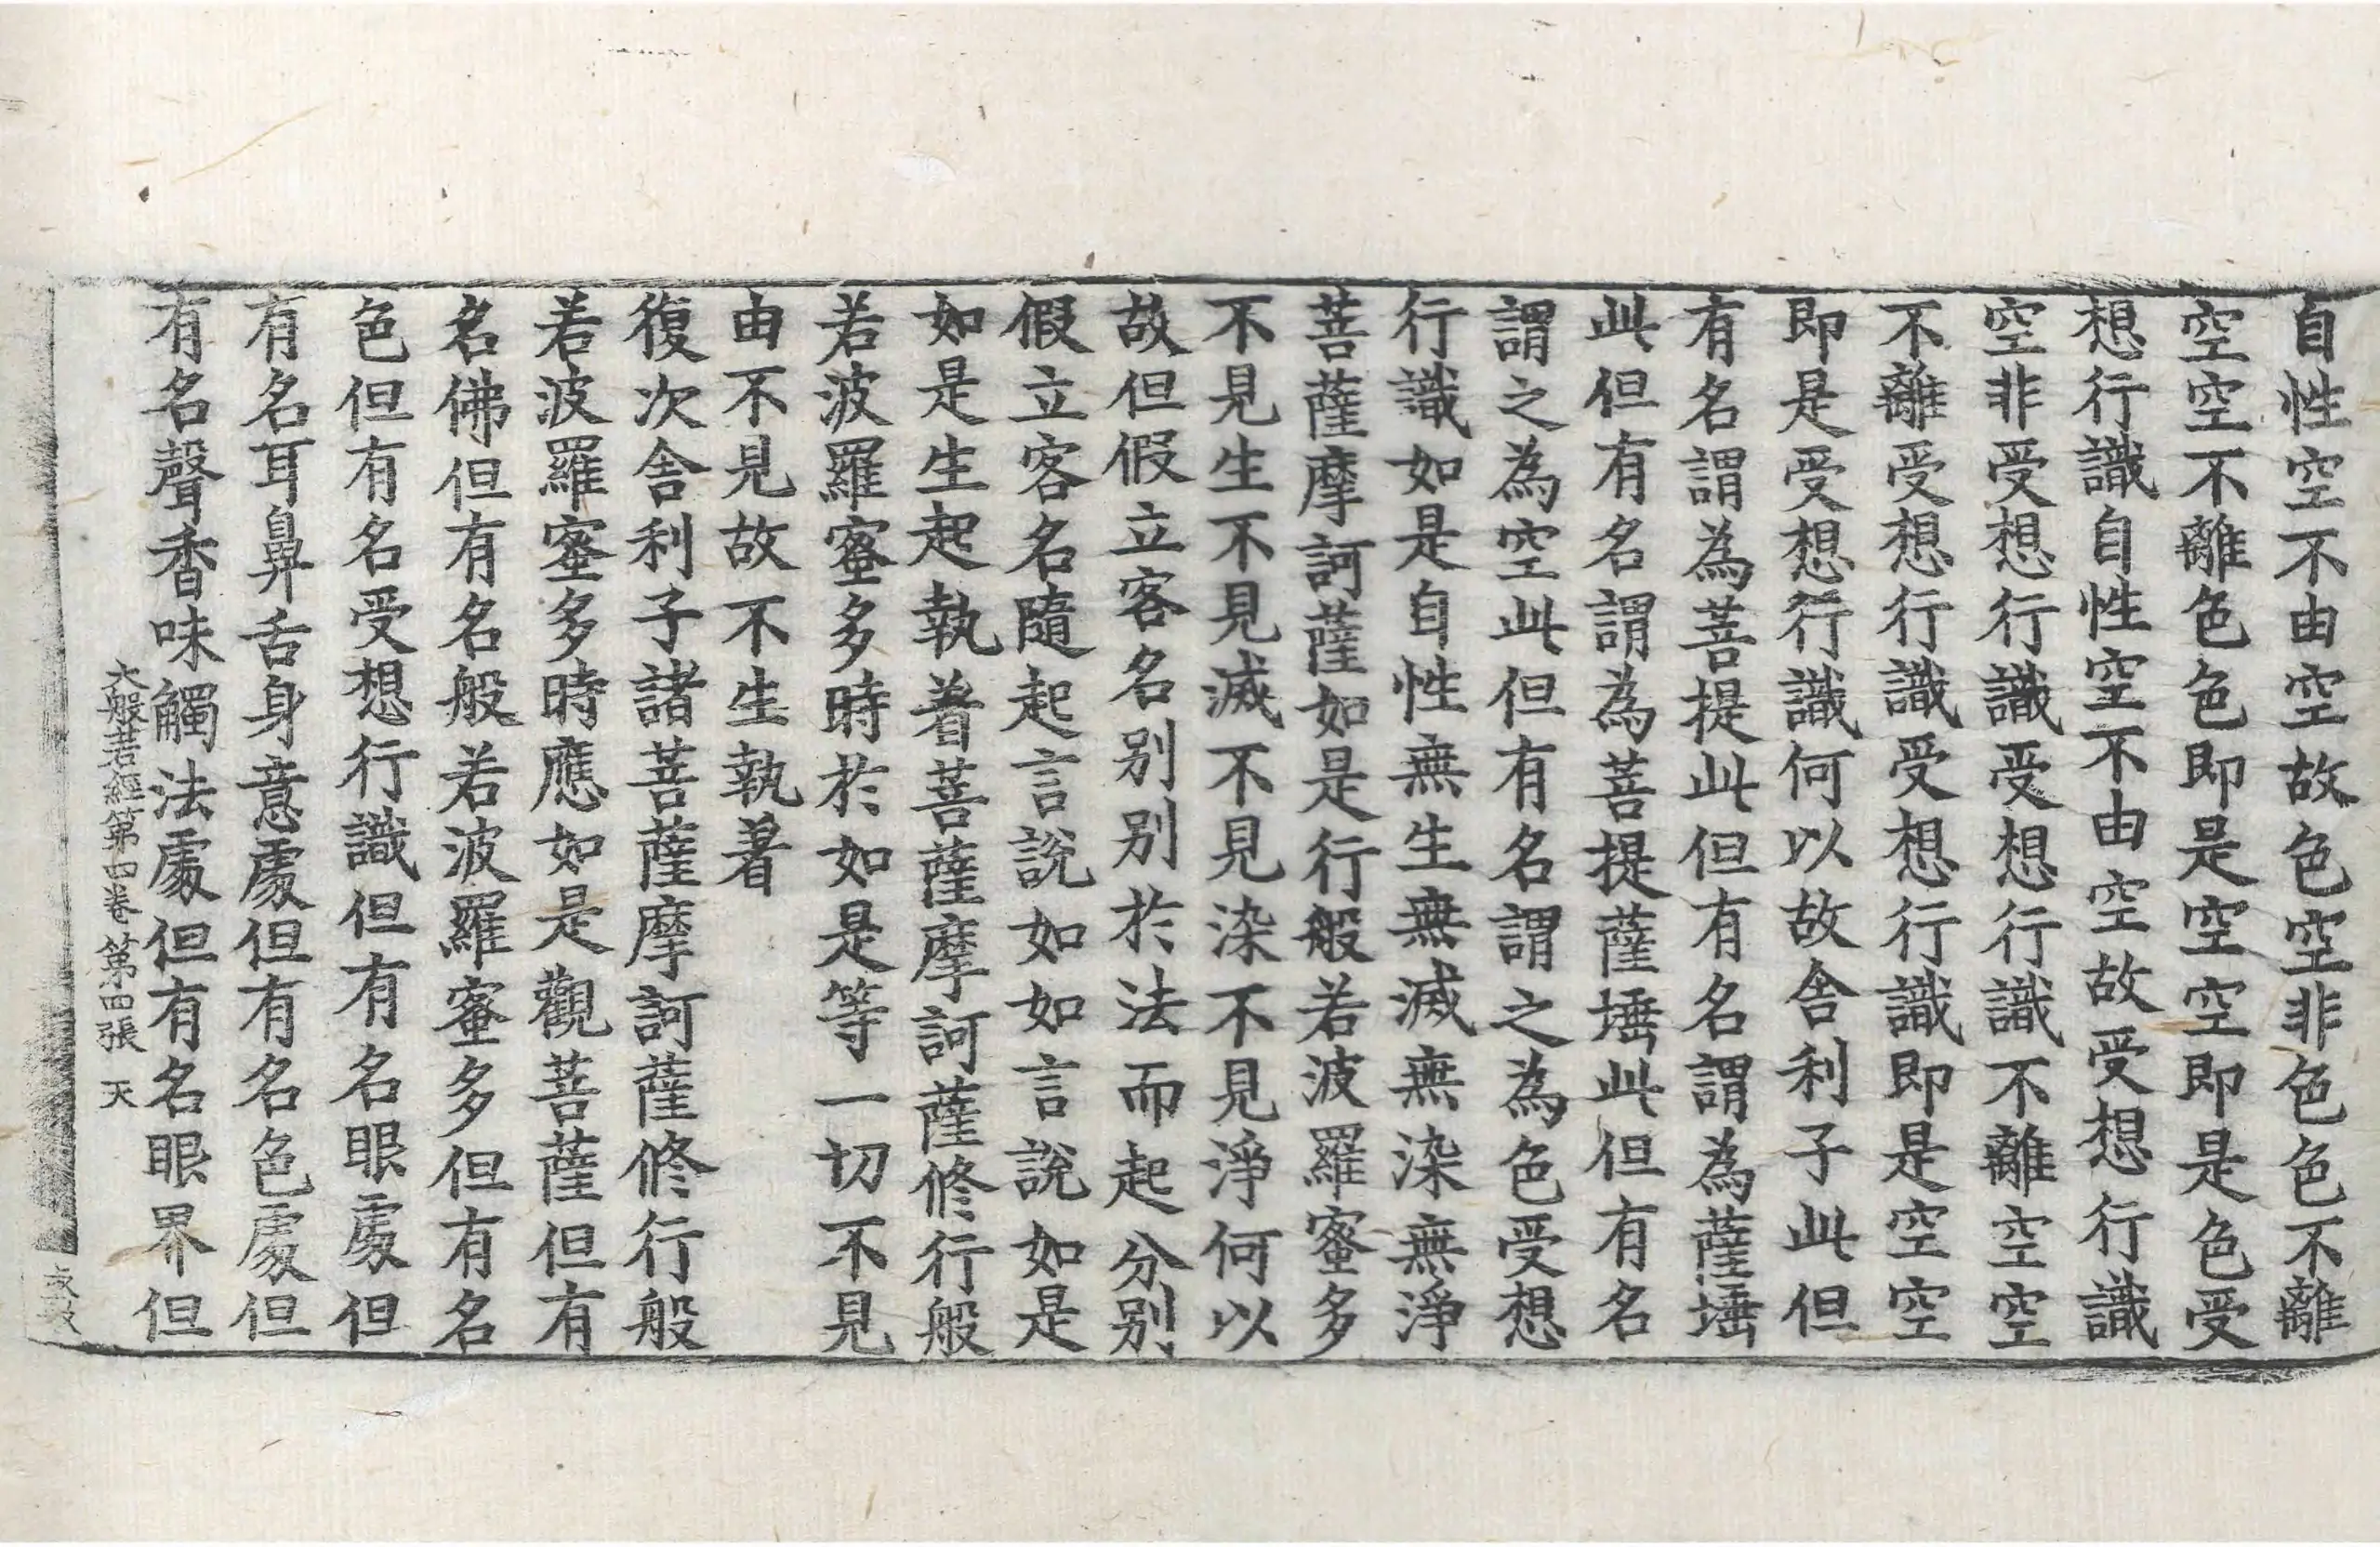 自性空不由空故色空非色色不離
空空不離色色即是空空即是色受
想行識自性空不由空故受想行識
空非受想行識受想行識不離空空
不離受想行識受想行識即是空空
即是受想行識何以故舍利子此但
有名謂為菩提此但有名謂為薩埵
此但有名謂為菩提薩埵此但有名
謂之為空此但有名謂之為色受想
行識如是自性無生無滅無染無淨
菩薩摩訶薩如是行般若波羅蜜多
不見生不見滅不見染不見淨何以
故但假立客名別別於法而起分別
假立客名隨起言說如如言說如是
如是生起執着菩薩摩訶薩修行般
若波羅蜜多時於如是等一切不見
由不見故不生執着
復次舍利子諸菩薩摩訶薩修行般
若波羅蜜多時應如是觀菩薩但有
名佛但有名般若波羅蜜多但有名
色但有名受想行識但有名眼處但
有名耳鼻舌身意處但有名色處但
有名聲香味觸法處但有名眼界但
大般若經第四卷 第四張 天